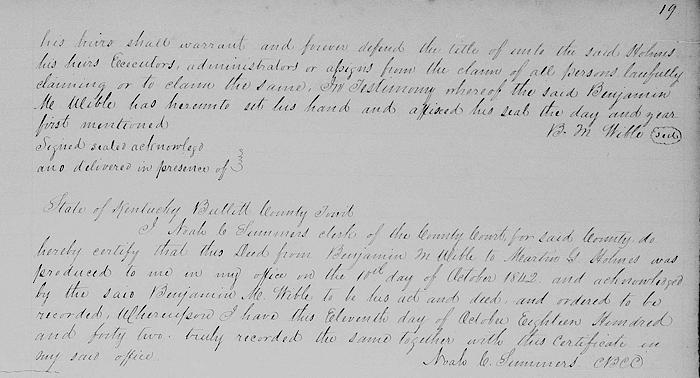 19
his heirs shall warrant and forever defend the title of unto the said Holmes
his heirs Executors, administrators or assigns from the claim of all persons lawfully
claiming or to claim the same, In Testimony whereof the said Benjamin
M. Wible has hereunto set his hand and affixed his seal the day and year
first mentioned
B. M Wible seal
Signed sealed acknowlegd
and delivered in presence of
State of Kentucky Bullitt County Towit
I Noah C Summers clerk of the County Court for said County do
hereby certify that this Deed from Benjamin M Wible to Martin G Holmes was
produced to me in my office on the 10th day of October 1842. and acknowledged
by the said Benjamin M. Wible to be his act and deed, and ordered to be
recorded, Whereupon I have this Eleventh day of October Eighteen Hundred
and forty two. truly recorded the same together with this Certificate in
my said office.
Noah C. Summers CBCC